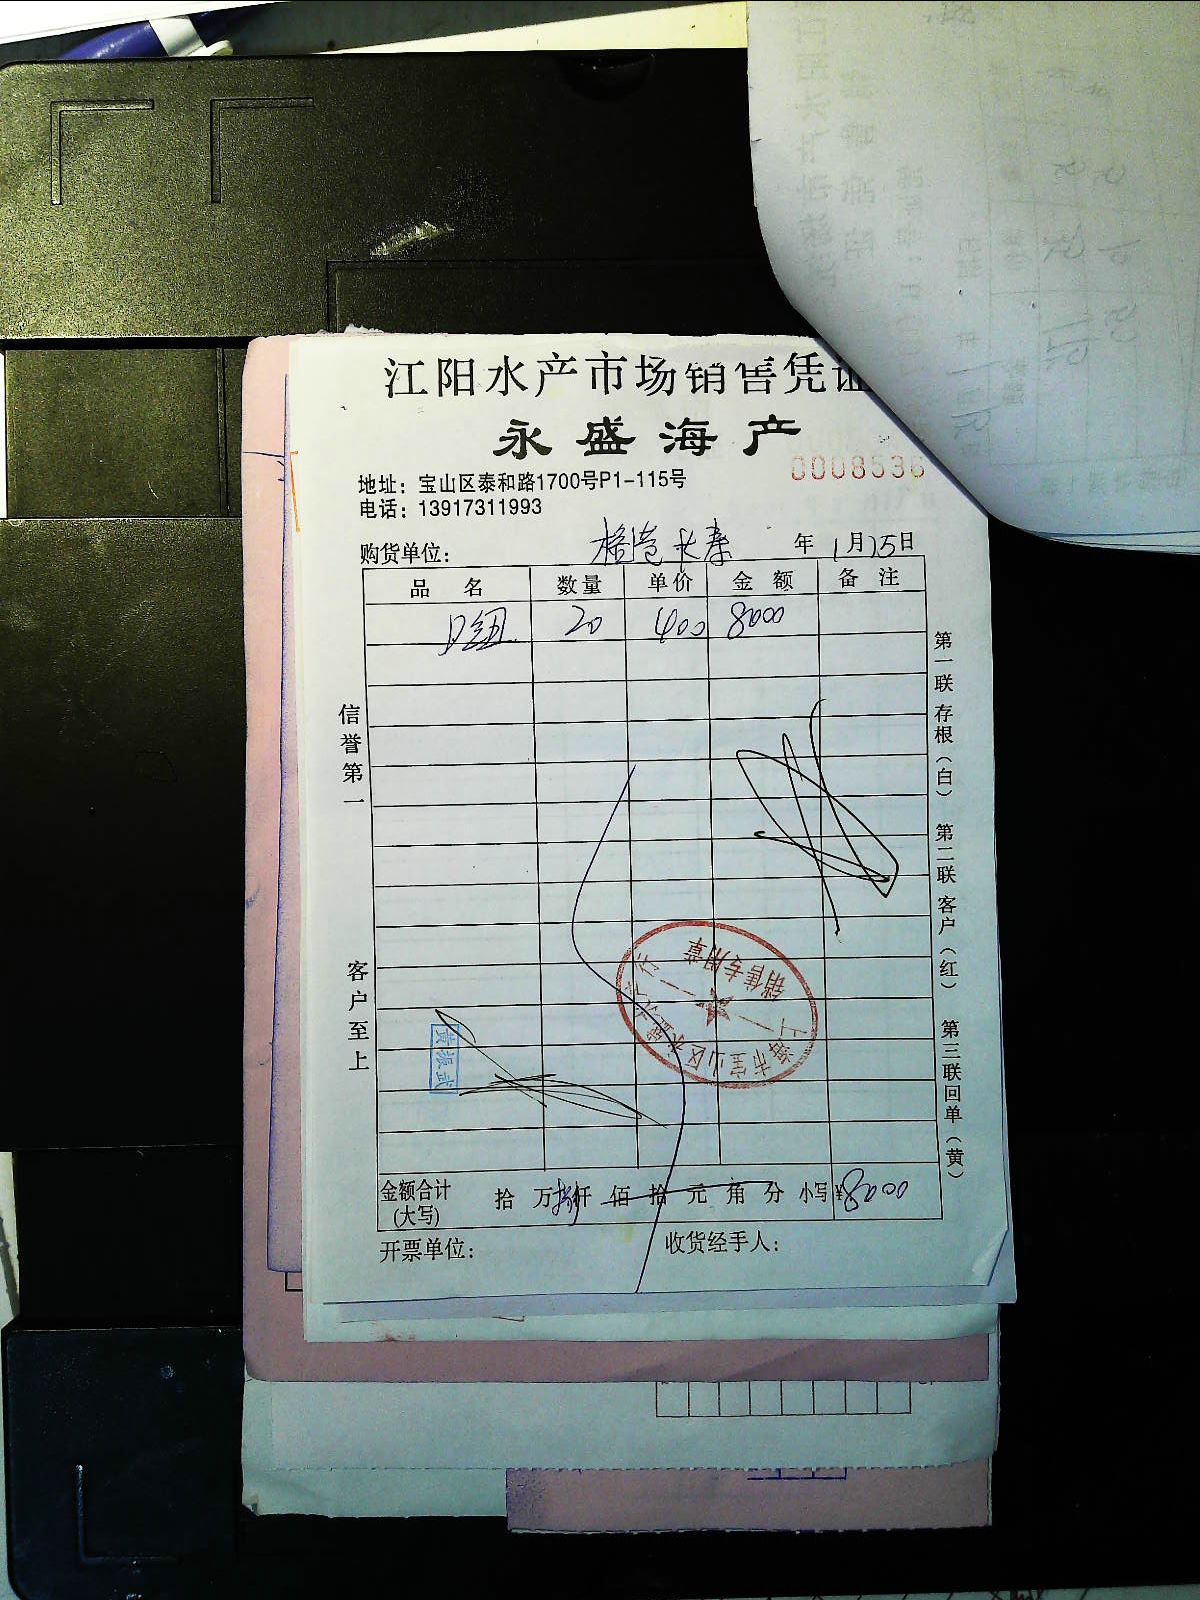 江阳水产市场销售凭证
永盛海产
0008536
地址：宝山区泰和路1700号P1-115号
电话：13917311993
购货单位： 年 1月15日
品 名 数量 单价 金 额 备 注
20 400 8000
信誉第一
客户至上
第一联 存根（白） 第二联 客户（红） 第三联 回单（黄）
销售专用章
上海市宝山区永盛
黄振武
金额合计（大写） 拾 万 捌仟 佰 拾 元 角 分 小写¥8000
开票单位： 收货经手人：